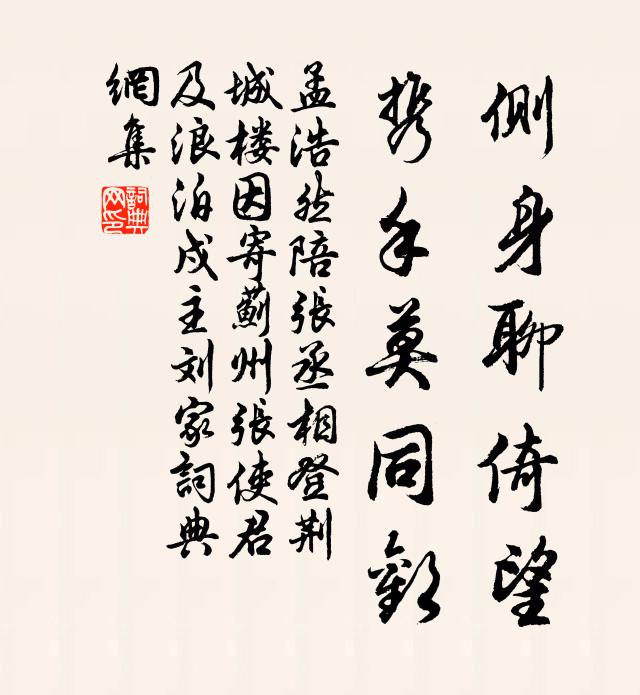 側身聊倚望
携手莫同歡
孟浩然陪張丞相登荆
城楼因寄薊州張使君
及浪泊戍主刘家詞典
網集
詞典網印